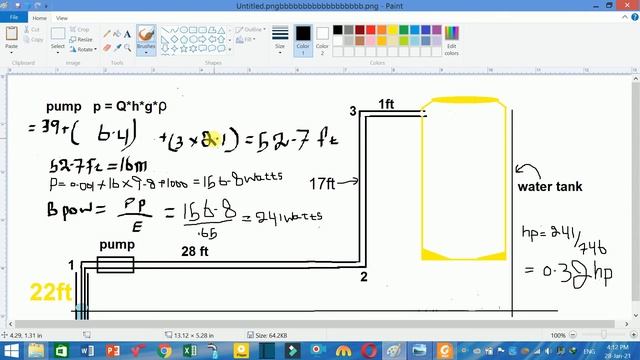 Untitled.pngbbbbbbbbbbbbbbbbbb.png - Paint
File Home View
Paste Cut Copy Select Crop Resize Rotate Brushes Shapes Outline Fill Size Color 1 Color 2 Edit colors
Clipboard Image Tools Shapes Colors
pump p = Q*h*g*ρ
= 39+( 6.4) +(3 x 2.1) = 52.7 ft
52.7ft = 16m
P= 0.001 x 16 x 9.8 x 1000 = 156.8 watts
B pow = Pp/E = 156.8/.65 = 241 watts
3
1ft
17ft
water tank
hp = 241/746
= 0.32 hp
pump
28 ft
1
2
22ft
4.29, 1.31 in 13.12 × 5.28 in Size: 64.2KB 100%
4:12 PM
ENG
28-Jan-21